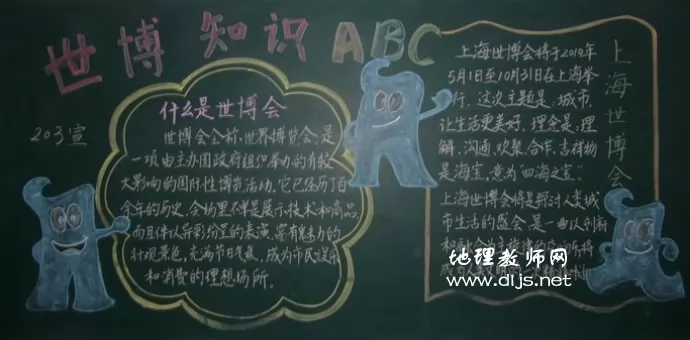 世博知识ABC
203宣
什么是世博会
世博会全称:世界博览会;是
一项由主办国政府组织举办的有较
大影响的国际性博览活动,它已经历了百
余年的历史,会场里不单是展示技术和商品,
而且伴以异彩纷呈的表演,富有魅力的
壮观景色,充满节日气氛,成为市民娱乐
和消费的理想场所。
上海世博会将于2010年
5月1日至10月31日在上海举
行,这次主题是:城市,
让生活更美好,理念是:理
解,沟通,欢聚,合作,吉祥物
是海宝,意为四海之宝。
上海世博会将是探讨人类城
市生活的盛会,是一曲以创新
和
成为人类
上海世博会
地理教师网
www.dljs.net